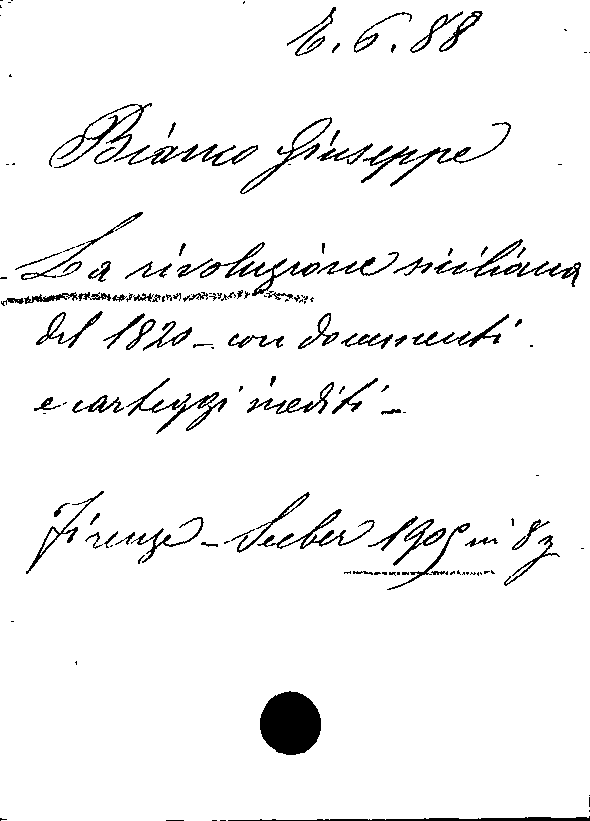 E. 6. 88
Bianco Giuseppe
La rivoluzione siciliana
del 1820 - con documenti
e carteggi inediti -
Firenze - Seeber 1905 in 8